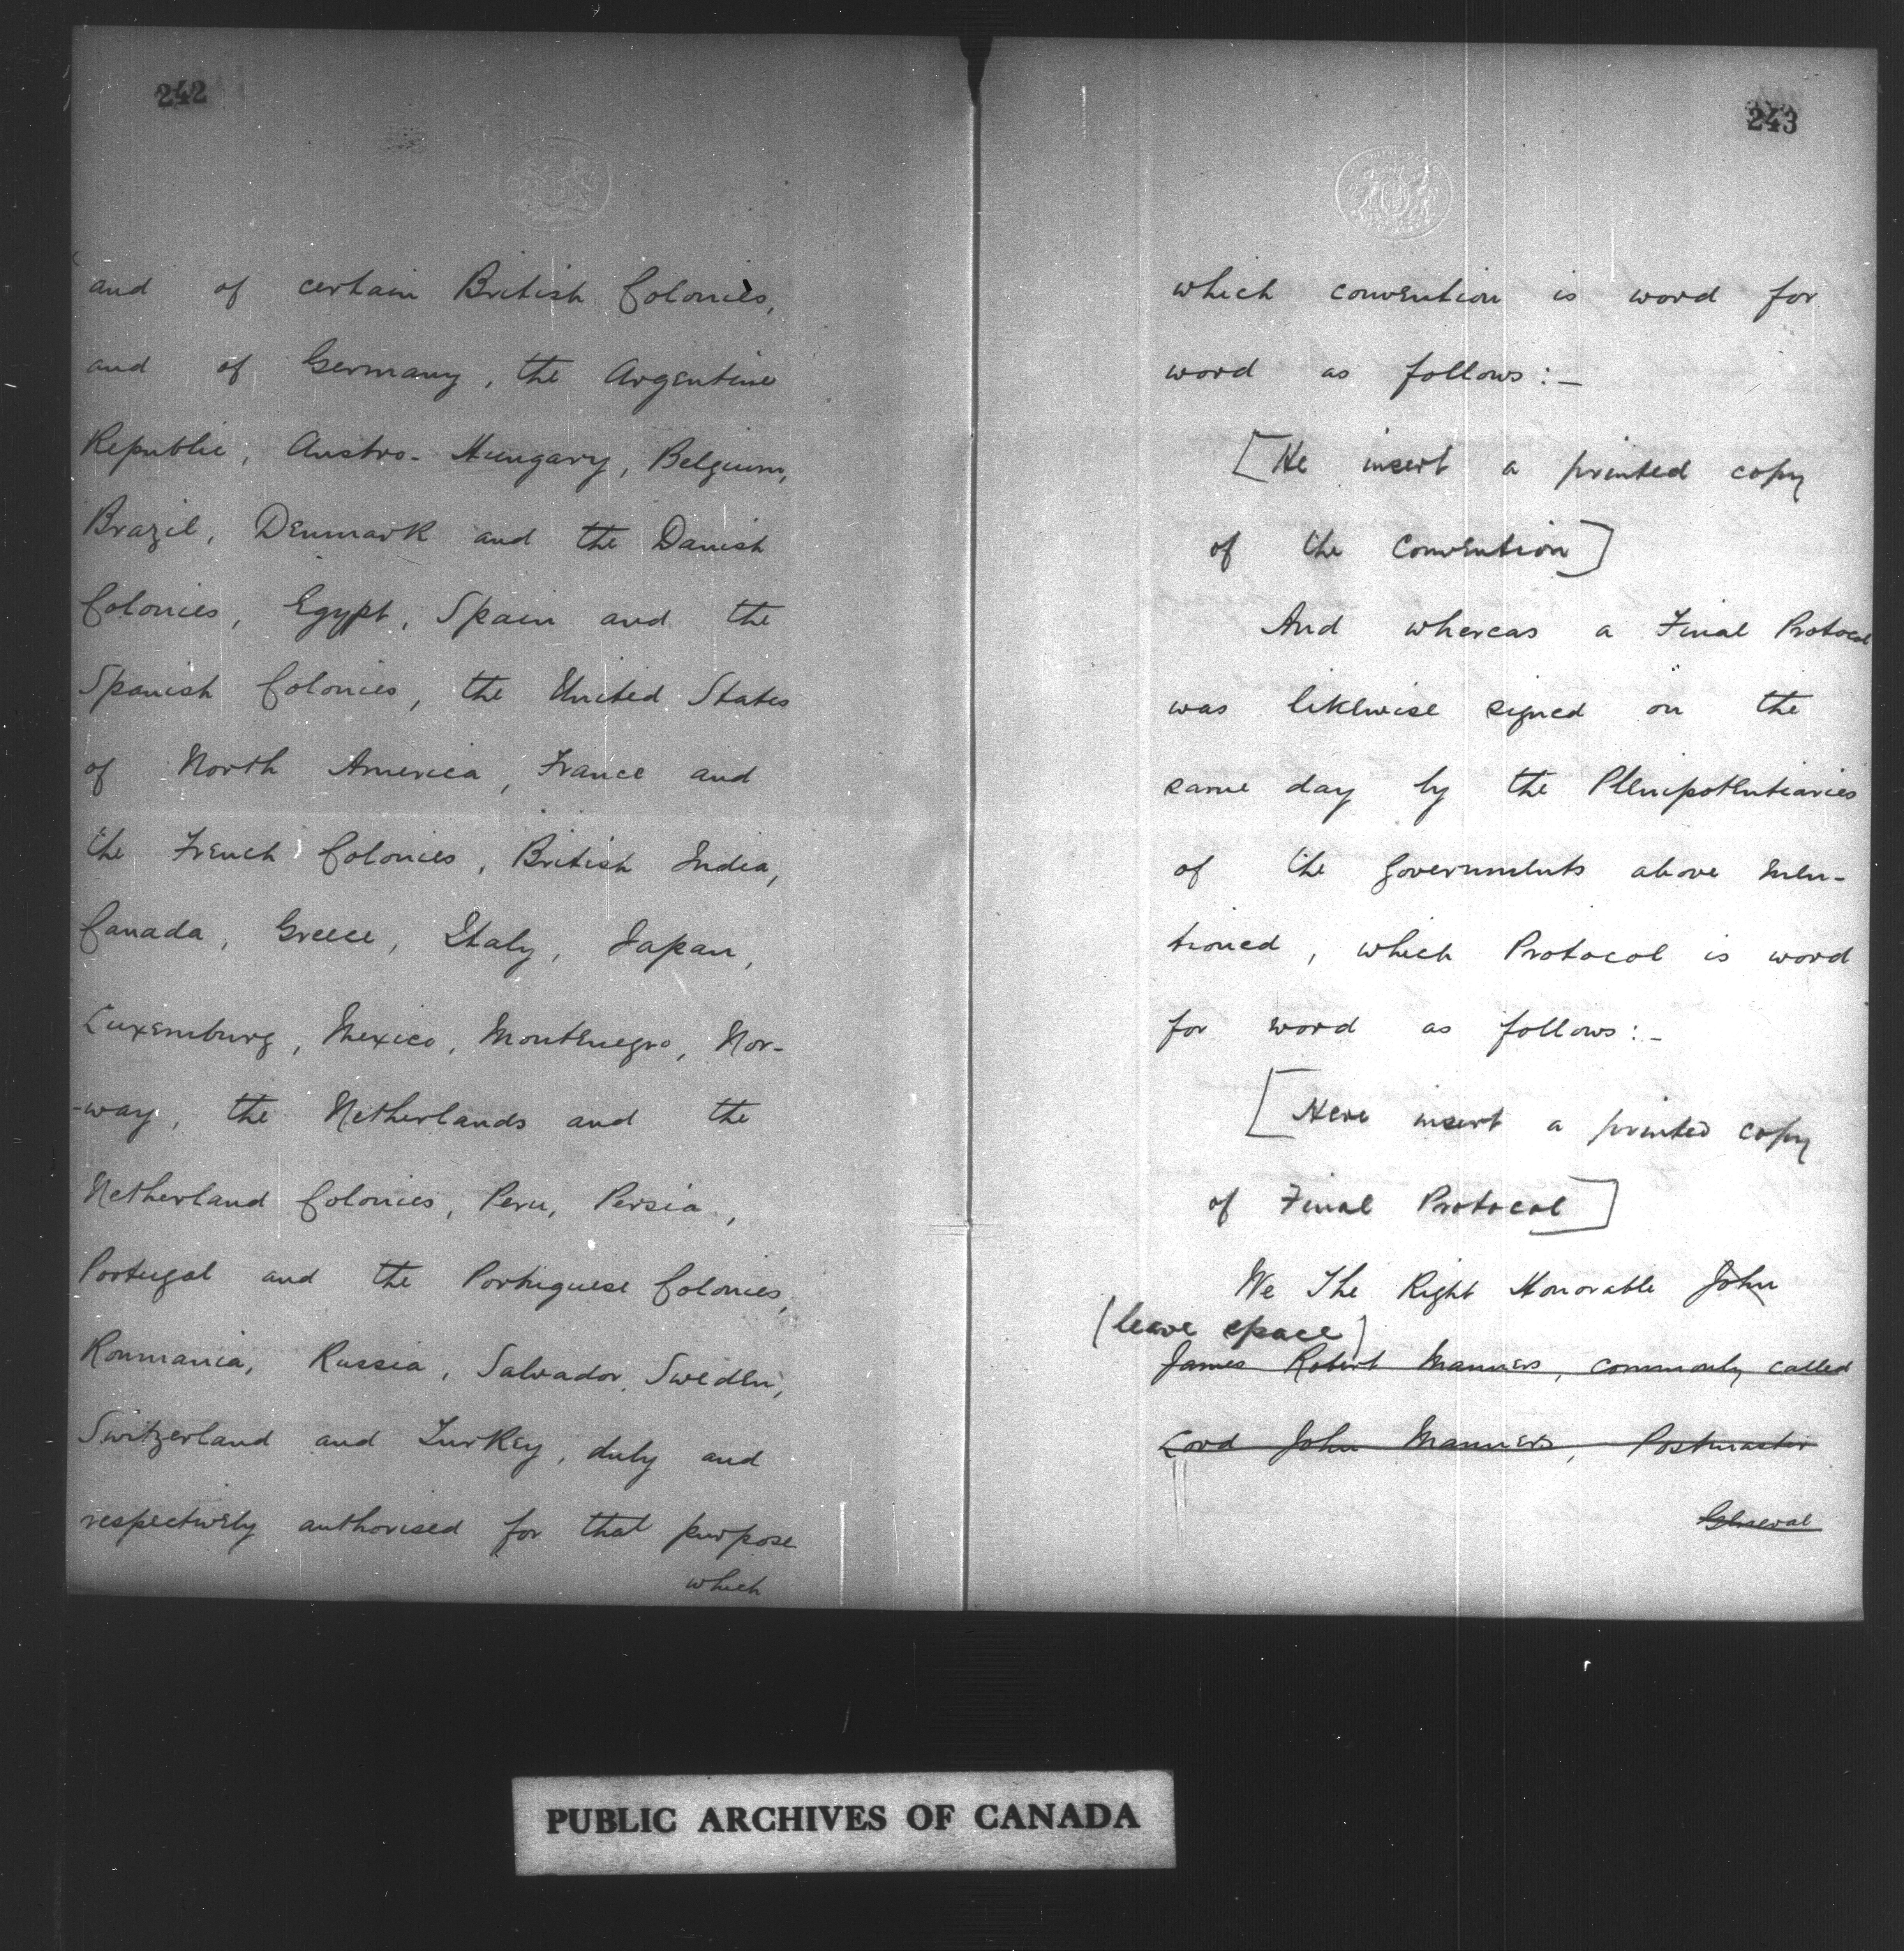 242
and of certain British Colonies,
and of Germany, the Argentine
Republic, Austro-Hungary, Belgium,
Brazil, Denmark and the Danish
Colonies, Egypt, Spain and the
Spanish Colonies, the United States
of North America, France and
the French Colonies, British India,
Canada, Greece, Italy, Japan,
Luxemburg, Mexico, Montenegro, Nor-
-way, the Netherlands and the
Netherland Colonies, Peru, Persia,
Portugal and the Portuguese Colonies,
Roumania, Russia, Salvador, Sweden,
Switzerland and Turkey, duly and
respectively authorised for that purpose
which
243
which convention is word for
word as follows:-
[He insert a printed copy
of the Convention]
And whereas a Final Protocol
was likewise signed on the
same day by the Plenipotentiaries
of the Governments above men-
tioned, which Protocol is word
for word as follows:-
[Here insert a printed copy
of Final Protocol]
We The Right Honorable John
(leave space)
James Robert Manners, commonly called
Lord John Manners, Postmaster
General
PUBLIC ARCHIVES OF CANADA